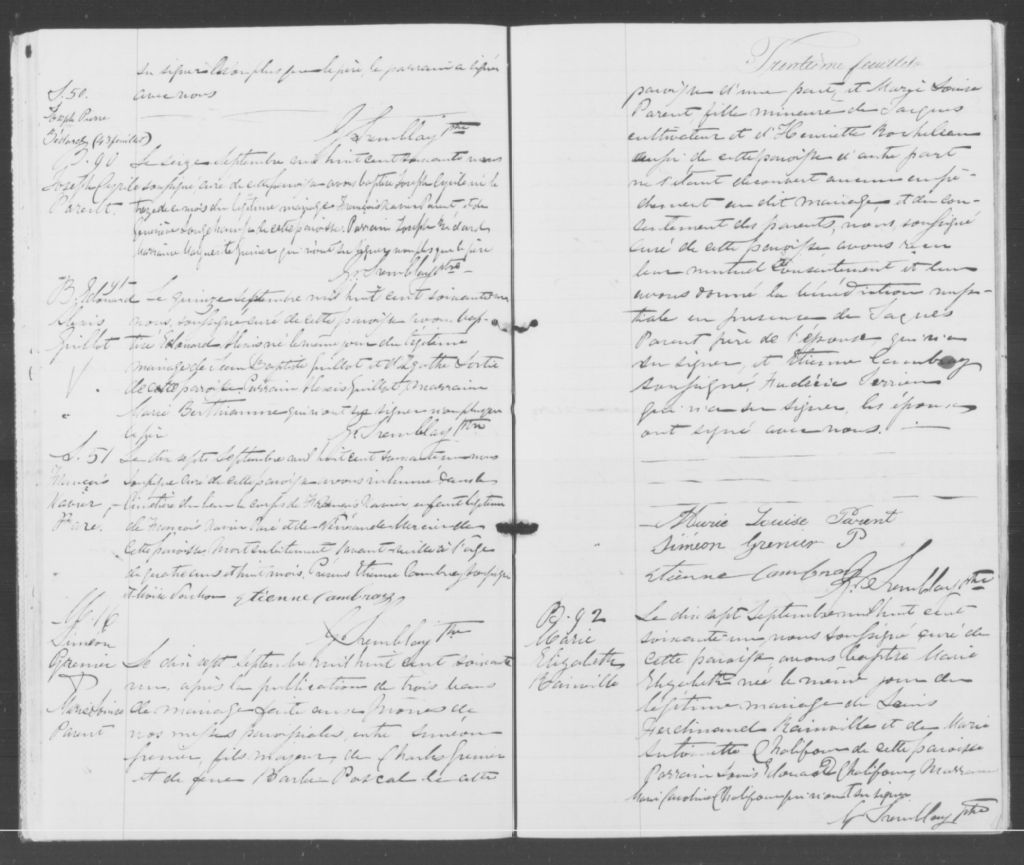 su signer non plus que le père, le parrain a signé
avec nous
S. 50.
Joseph Pierre
Bédard (43 feuillet)
G. Tremblay Ptre
B. 90
Joseph Cyrile
Parent.
Le seize septembre mil huit cent soixante un nous
soussigné curé de cette paroisse avons baptisé Joseph Cyrile né le
treize de ce mois du légitime mariage de François Xavier Parent et de
Geneviève de cette paroisse. Parrain Joseph Bédard
Marraine Marguerite Grenier qui n'ont su signer non plus que le père
G. Tremblay Ptre
B. 91
Edouard
Alexis
Guillot
Le quinze septembre mil huit cent soixante un
nous, soussigné curé de cette paroisse avons bap-
tisé Edouard Alexis né le même jour du légitime
mariage de Jean Baptiste Guillot et d'Agathe Fortié
de cette paroisse Parrain Alexis Guillot, marraine
Marie Berthiaume qui n'ont su signer non plus que
le père
G. Tremblay Ptre
S. 51
François
Xavier
Paré.
Le dix sept septembre mil huit cent soixante un nous
soussigné curé de cette paroisse avons inhumé dans le
cimetière du lieu le corps de François Xavier enfant légitime
de François Xavier Paré et de Mercier de
cette paroisse, mort subitement avant veille à l'âge
de quatre ans et huit mois. Présens Etienne Cambray soussigné
et Etienne Cambray
G. Tremblay Ptre
M. 16
Siméon
Grenier
&
Marie Louise
Parent
Le dix sept septembre mil huit cent soixante
un, après la publication de trois bans
de mariage faite aux prônes de
nos messes paroissiales, entre Siméon
Grenier, fils majeur de Charles Grenier
et de feue Barbe Pascal de cette
Trentième feuillet
paroisse d'une part, et Marie Louise
Parent fille mineure de Jacques
cultivateur et d'Henriette Rocheleau
aussi de cette paroisse d'autre part
ne s'étant découvert aucun empê-
chement au dit mariage, et du con-
sentement des parents, nous, soussigné
curé de cette paroisse avons reçu
leur mutuel consentement et leur
avons donné la bénédiction nup-
tiale en présence de Jaques
Parent père de l'épouse qui n'a
su signer, et Etienne Cambray
soussigné, Frédéric Perrien
qui n'a su signer, les époux
ont signé avec nous.
Marie Louise Parent
Siméon Grenier P
Etienne Cambray
G. Tremblay Ptre
B. 92
Marie
Elizabeth
Rainville
Le dix sept Septembre mil huit cent
soixante un, nous soussigné curé de
cette paroisse avons baptisé Marie
Elizabeth née le même jour du
légitime mariage de Louis
Ferdinand Rainville et de Marie
Antoinette Chalifour de cette paroisse
Parrain Louis Edouard Chalifour, Marraine
Marie Caroline Chalifour qui n'ont su signer
G. Tremblay Ptre